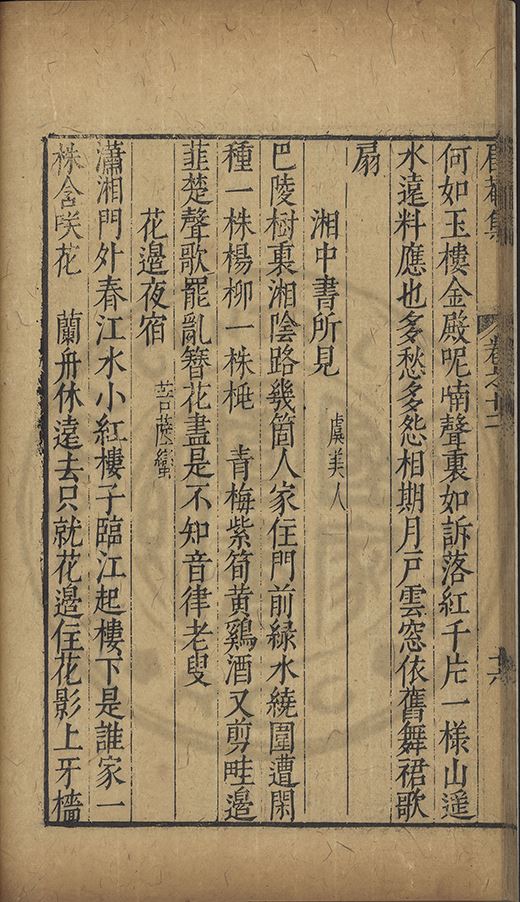 何如玉樓金殿呢喃聲裏如訴落紅千片一樣山遥
水遠料應也多愁多怨相期月戶雲窓依舊舞裙歌
扇
湘中書所見 虞美人
巴陵樹裏湘隂路幾箇人家住門前緑水繞圍遭閑
種一株楊柳一株桃 青梅紫筍黄雞酒又剪畦邉
韮楚聲歌罷亂簪花盡是不知音律老叟
花邉夜宿 菩薩蠻
瀟湘門外春江水小紅樓子臨江起樓下是誰家一
株含咲花 蘭舟休遠去只就花邉住花影上牙檣